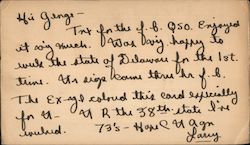 Hi George -
Tnx for the f.b. QSO. Enjoyed
it vy much. Was vy happy to
work the state of Delaware for the 1st.
time. Ur sigs came thru hr f.b.
The Ex-yl colored this card especially
for U - U R the 38th state I've
worked. 73's - Hope C U Agn
Larry